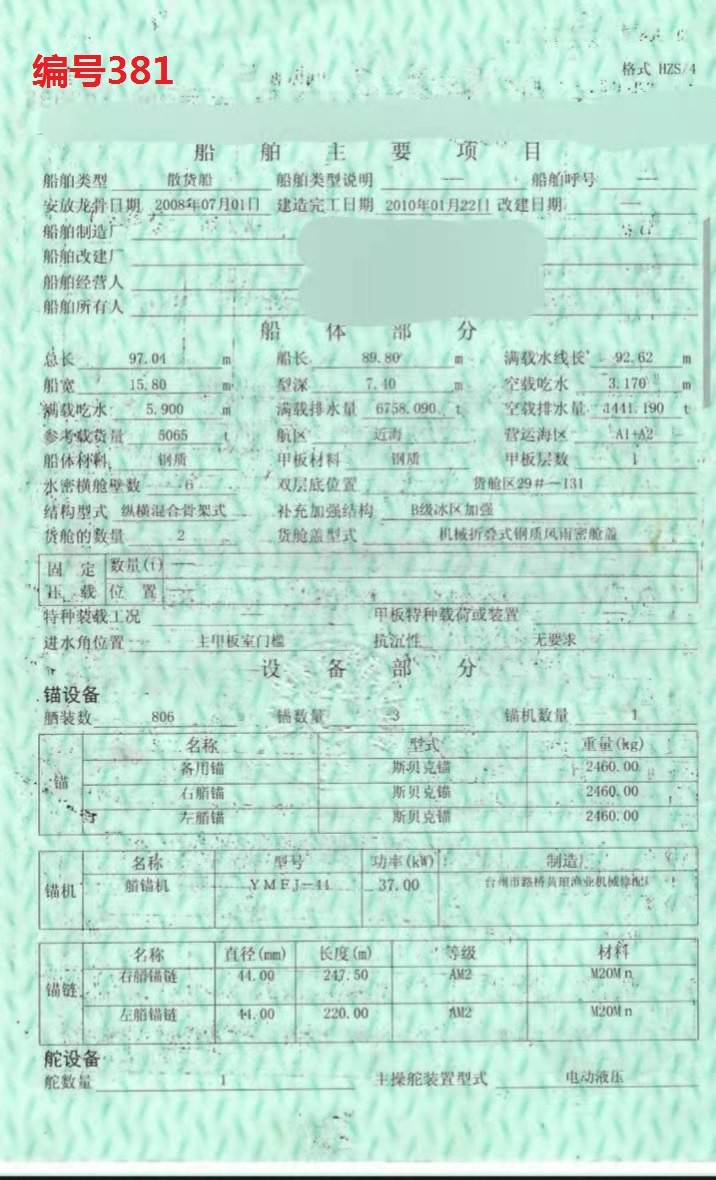 编号381
格式 HZS/4
船舶主要项目
船舶类型 散货船 船舶类型说明 — 船舶呼号 —
安放龙骨日期 2008年07月01日 建造完工日期 2010年01月22日 改建日期 —
船舶制造厂
船舶改建厂
船舶经营人
船舶所有人
船体部分
总长 97.04 m 船长 89.80 m 满载水线长 92.62 m
船宽 15.80 m 型深 7.40 m 空载吃水 3.170 m
满载吃水 5.900 m 满载排水量 6758.090 t 空载排水量 3441.190 t
参考载货量 5065 t 航区 近海 营运海区 A1+A2
船体材料 钢质 甲板材料 钢质 甲板层数 1
水密横舱壁数 6 双层底位置 货舱区29#~131
结构型式 纵横混合骨架式 补充加强结构 B级冰区加强
货舱的数量 2 货舱盖型式 机械折叠式钢质风雨密舱盖
固定压载 数量(t) —
位置 —
特种装载工况 — 甲板特种载荷或装置 —
进水角位置 主甲板室门槛 抗沉性 无要求
设备部分
锚设备
舾装数 806 锚数量 3 锚机数量 1
锚 名称 型式 重量(kg)
备用锚 斯贝克锚 2460.00
右艏锚 斯贝克锚 2460.00
左艏锚 斯贝克锚 2460.00
锚机 名称 型号 功率(kW) 制造厂
艏锚机 YMFJ-44 37.00 台州市路桥黄琅渔业机械修配厂
锚链 名称 直径(mm) 长度(m) 等级 材料
右艏锚链 44.00 247.50 AM2 M20Mn
左艏锚链 44.00 220.00 AM2 M20Mn
舵设备
舵数量 1 主操舵装置型式 电动液压